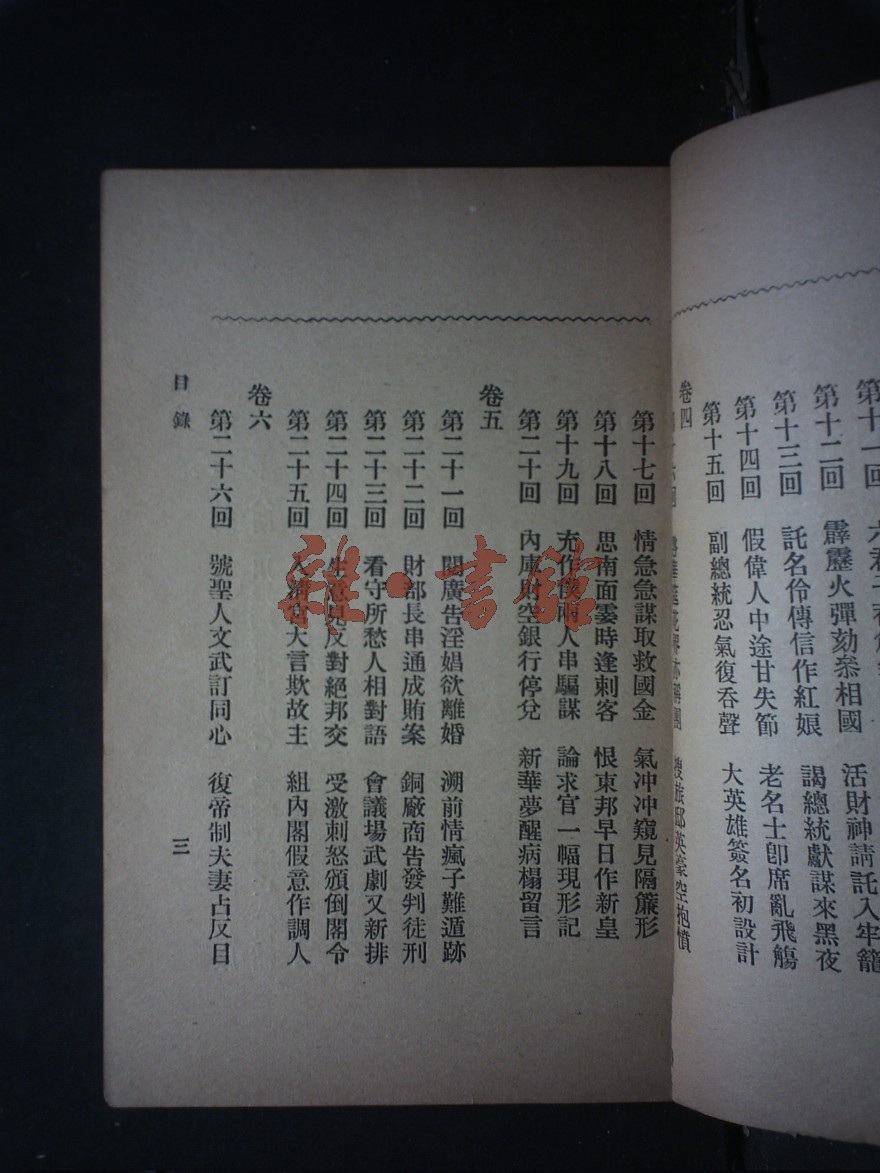 第十一回
第十二回 霹靂火彈劾叅相國 活財神請託入牢籠
第十三回 託名伶傳信作紅娘 謁總統獻謀來黑夜
第十四回 假偉人中途甘失節 老名士卽席亂飛觴
第十五回 副總統忍氣復吞聲 大英雄簽名初設計
卷四
空抱憤
第十七回 情急急謀取救國金 氣冲冲窺見隔簾形
第十八回 思南面霎時逢刺客 恨東邦早日作新皇
第十九回 充作後兩人串騙謀 論求官一幅現形記
第二十回 內庫財空銀行停兌 新華夢醒病榻留言
卷五
第二十一回 閱廣告淫娼欲離婚 溯前情瘋子難遁跡
第二十二回 財部長串通成賄案 銅廠商告發判徒刑
第二十三回 看守所愁人相對語 會議場武劇又新排
第二十四回 生意見反對絕邦交 受激刺怒頒倒閣令
第二十五回 入宮大言欺故主 組內閣假意作調人
卷六
第二十六回 號聖人文武訂同心 復帝制夫妻占反目
目錄
三
雜·書館